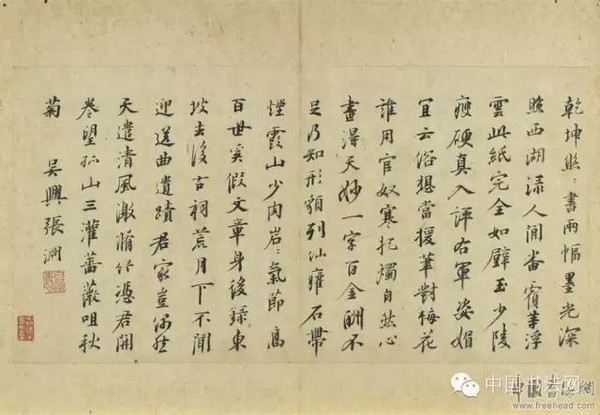 乾坤照書兩幅墨光深
照西湖渌人間畨筆浮
雲此紙完全如璧玉少陵
瘦硬真入評右軍姿媚
宜云俗想當援筆對梅花
誰用官奴寒把燭自然心
畫得天妙一字百金酬不
足乃知形類列仙臞石帶
煙霞山少肉岩〻氣節高
百世奚假文章身後録東
坡去後古祠荒月下不聞
迎送曲遺蹟君家豈偶然
天遣清風激脩竹憑君開
卷望孤山三灌薔薇咀秋
菊 吳興張淵
中国书法网
www.freehead.com